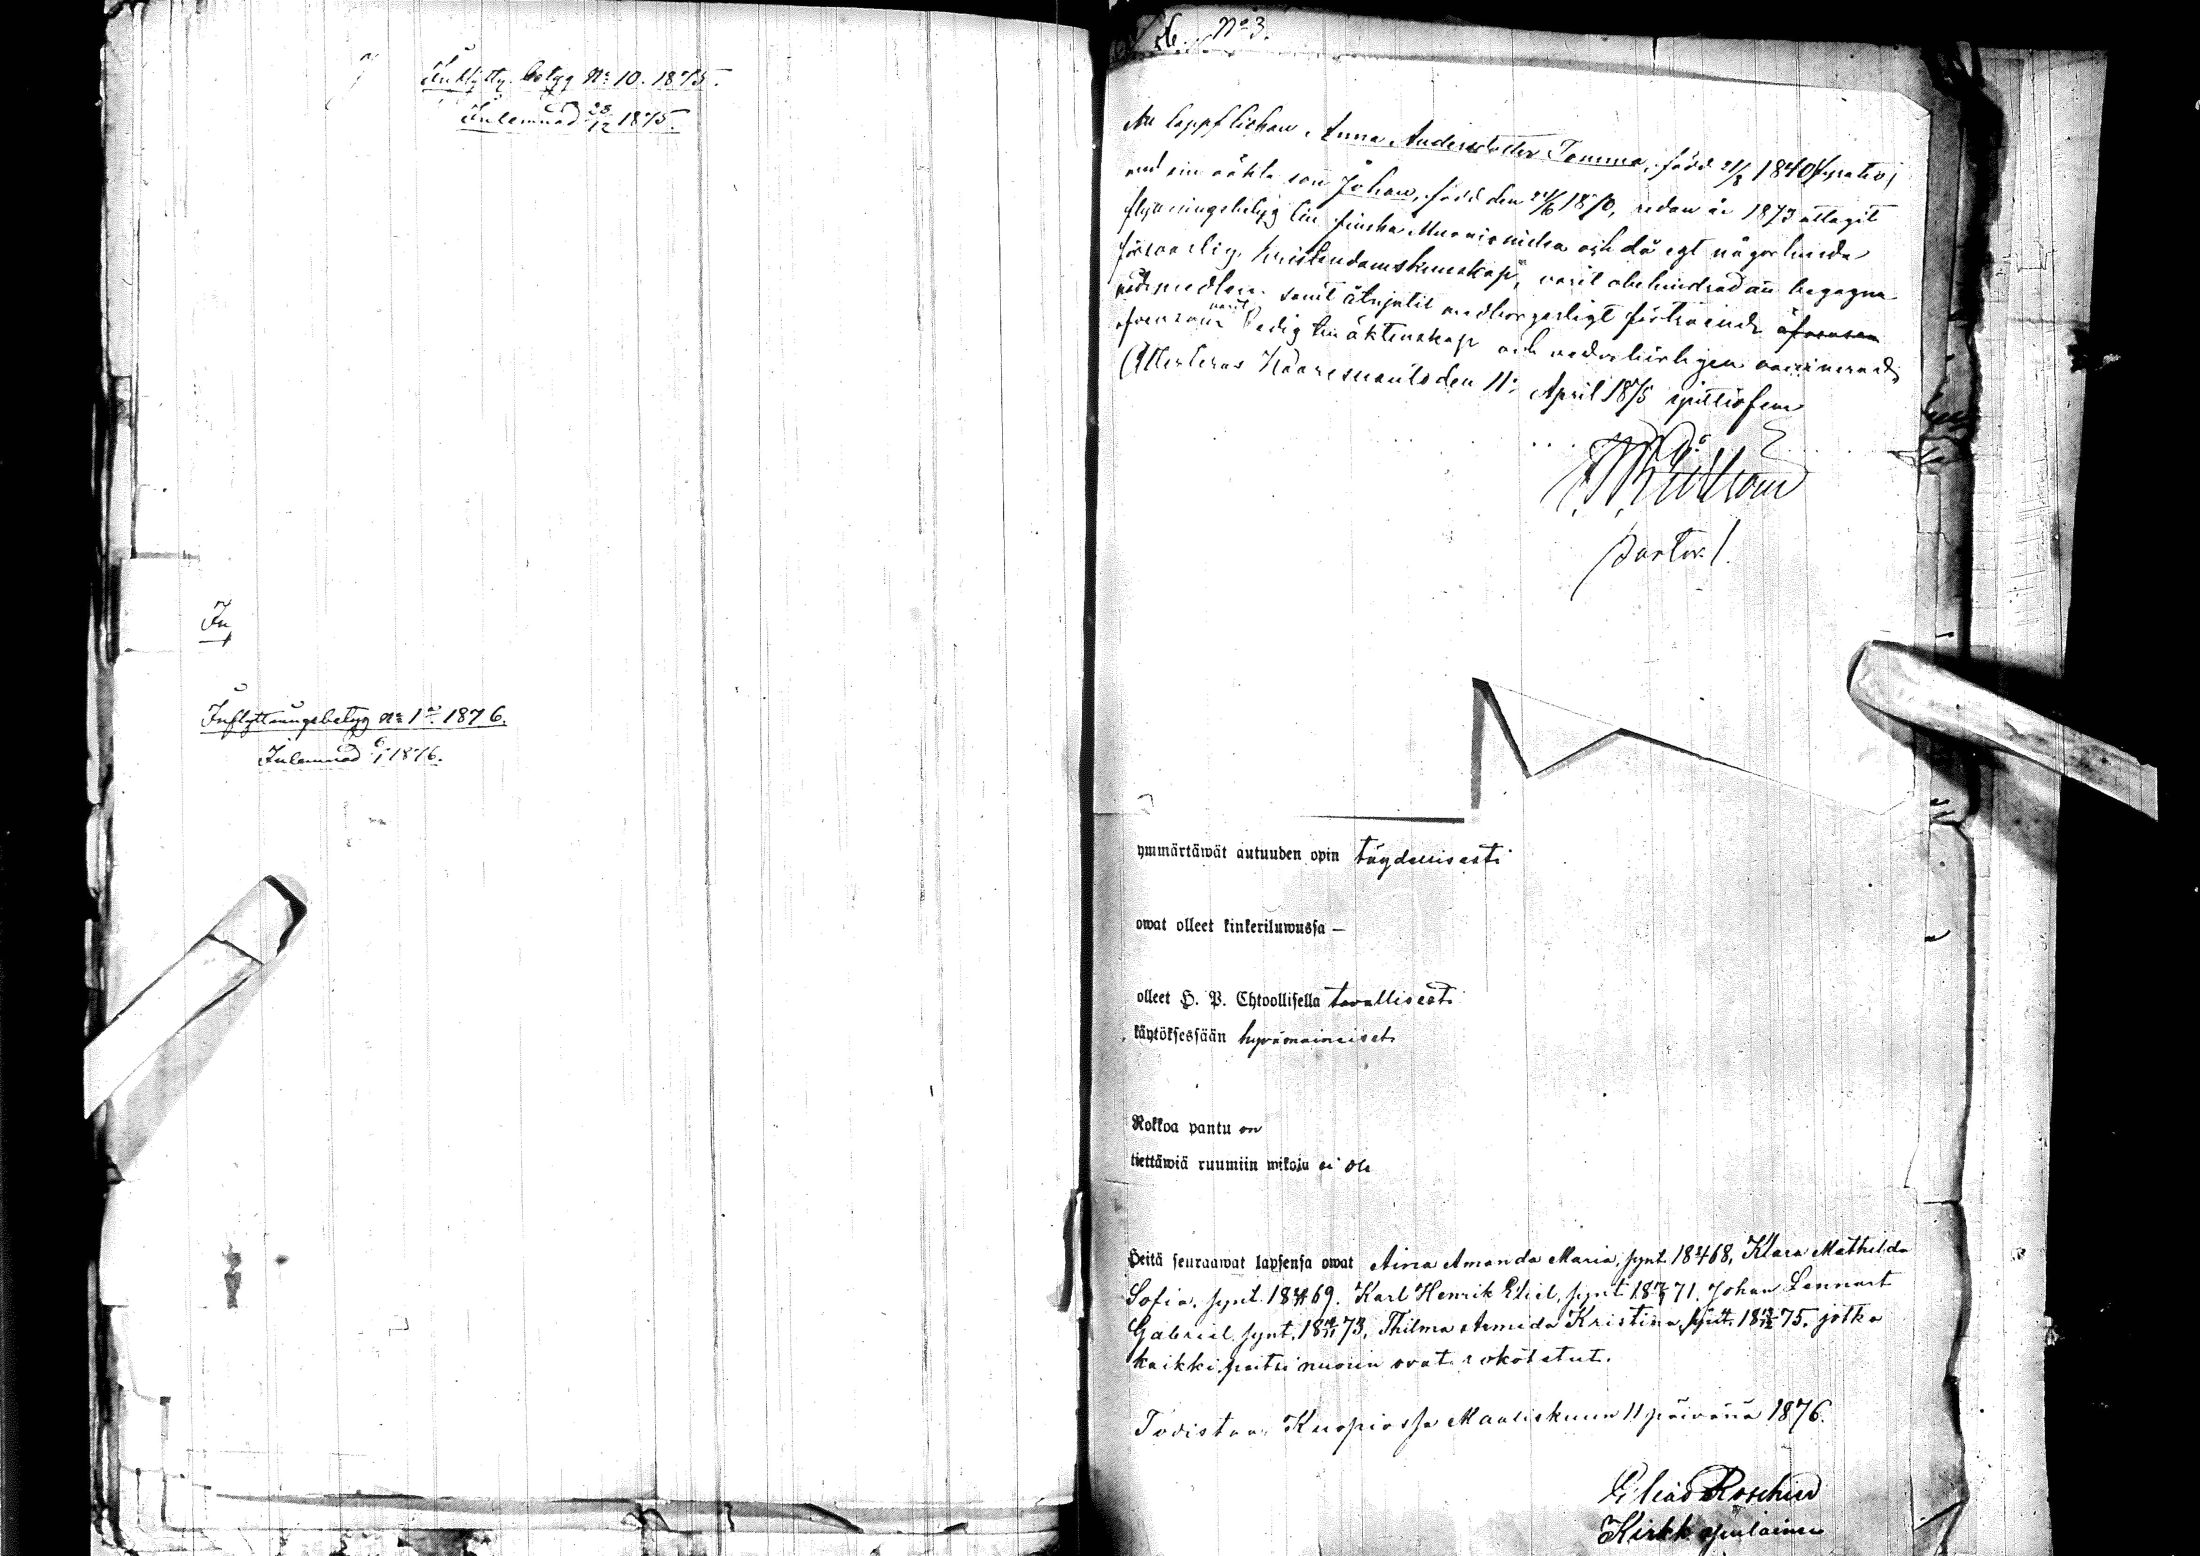 Inflyttn. betyg No 10. 1875.
Inlemnad 28/12 1875.
In
Inflyttningsbetyg No 1 1876.
Inlemnad 6/1 1876.
No 3.
Att lappflickan Anna Andersdotter Tomma, född 21/3 1840
med sin oäkta son Johan, född den 1870, redan år 1873 uttagit
flyttningsbetyg till finska Muonioniska och då egt någorlunda
försvarlig kristendomskunskap, varit obehindrad att begagna
nådemedlen samt åtnjutit medborgerligt förtroende äfvensom
äfvensom varit ledig till äktenskap och vederbörligen vaccinerad,
Attesteras Karesuando den 11. April 1875
Pastor.
ymmärtäwät autuuden opin täydellisesti
owat olleet kinkeriluwussa —
olleet H. P. Ehtoollisella tavallisesti
käytöksessään hyvämaineiset
Rokkoa pantu on
tiettäwiä ruumiin wikoja ei ole
Heitä seuraawat lapsensa owat Aina Amanda Maria, synt. 1868, Klara Mathilda
Sofia, synt. 1869. Karl Henrik Eliel, synt. 1871. Johan Lennart
Gabriel, synt. 1873, Thilma Armida Kristina, synt. 1875. jotka
kaikki paitsi nuorin ovat rokotetut.
Todistaa Kuopiossa Maaliskuun 11 päivänä 1876.
Elias Roschier
Kirkkoherra